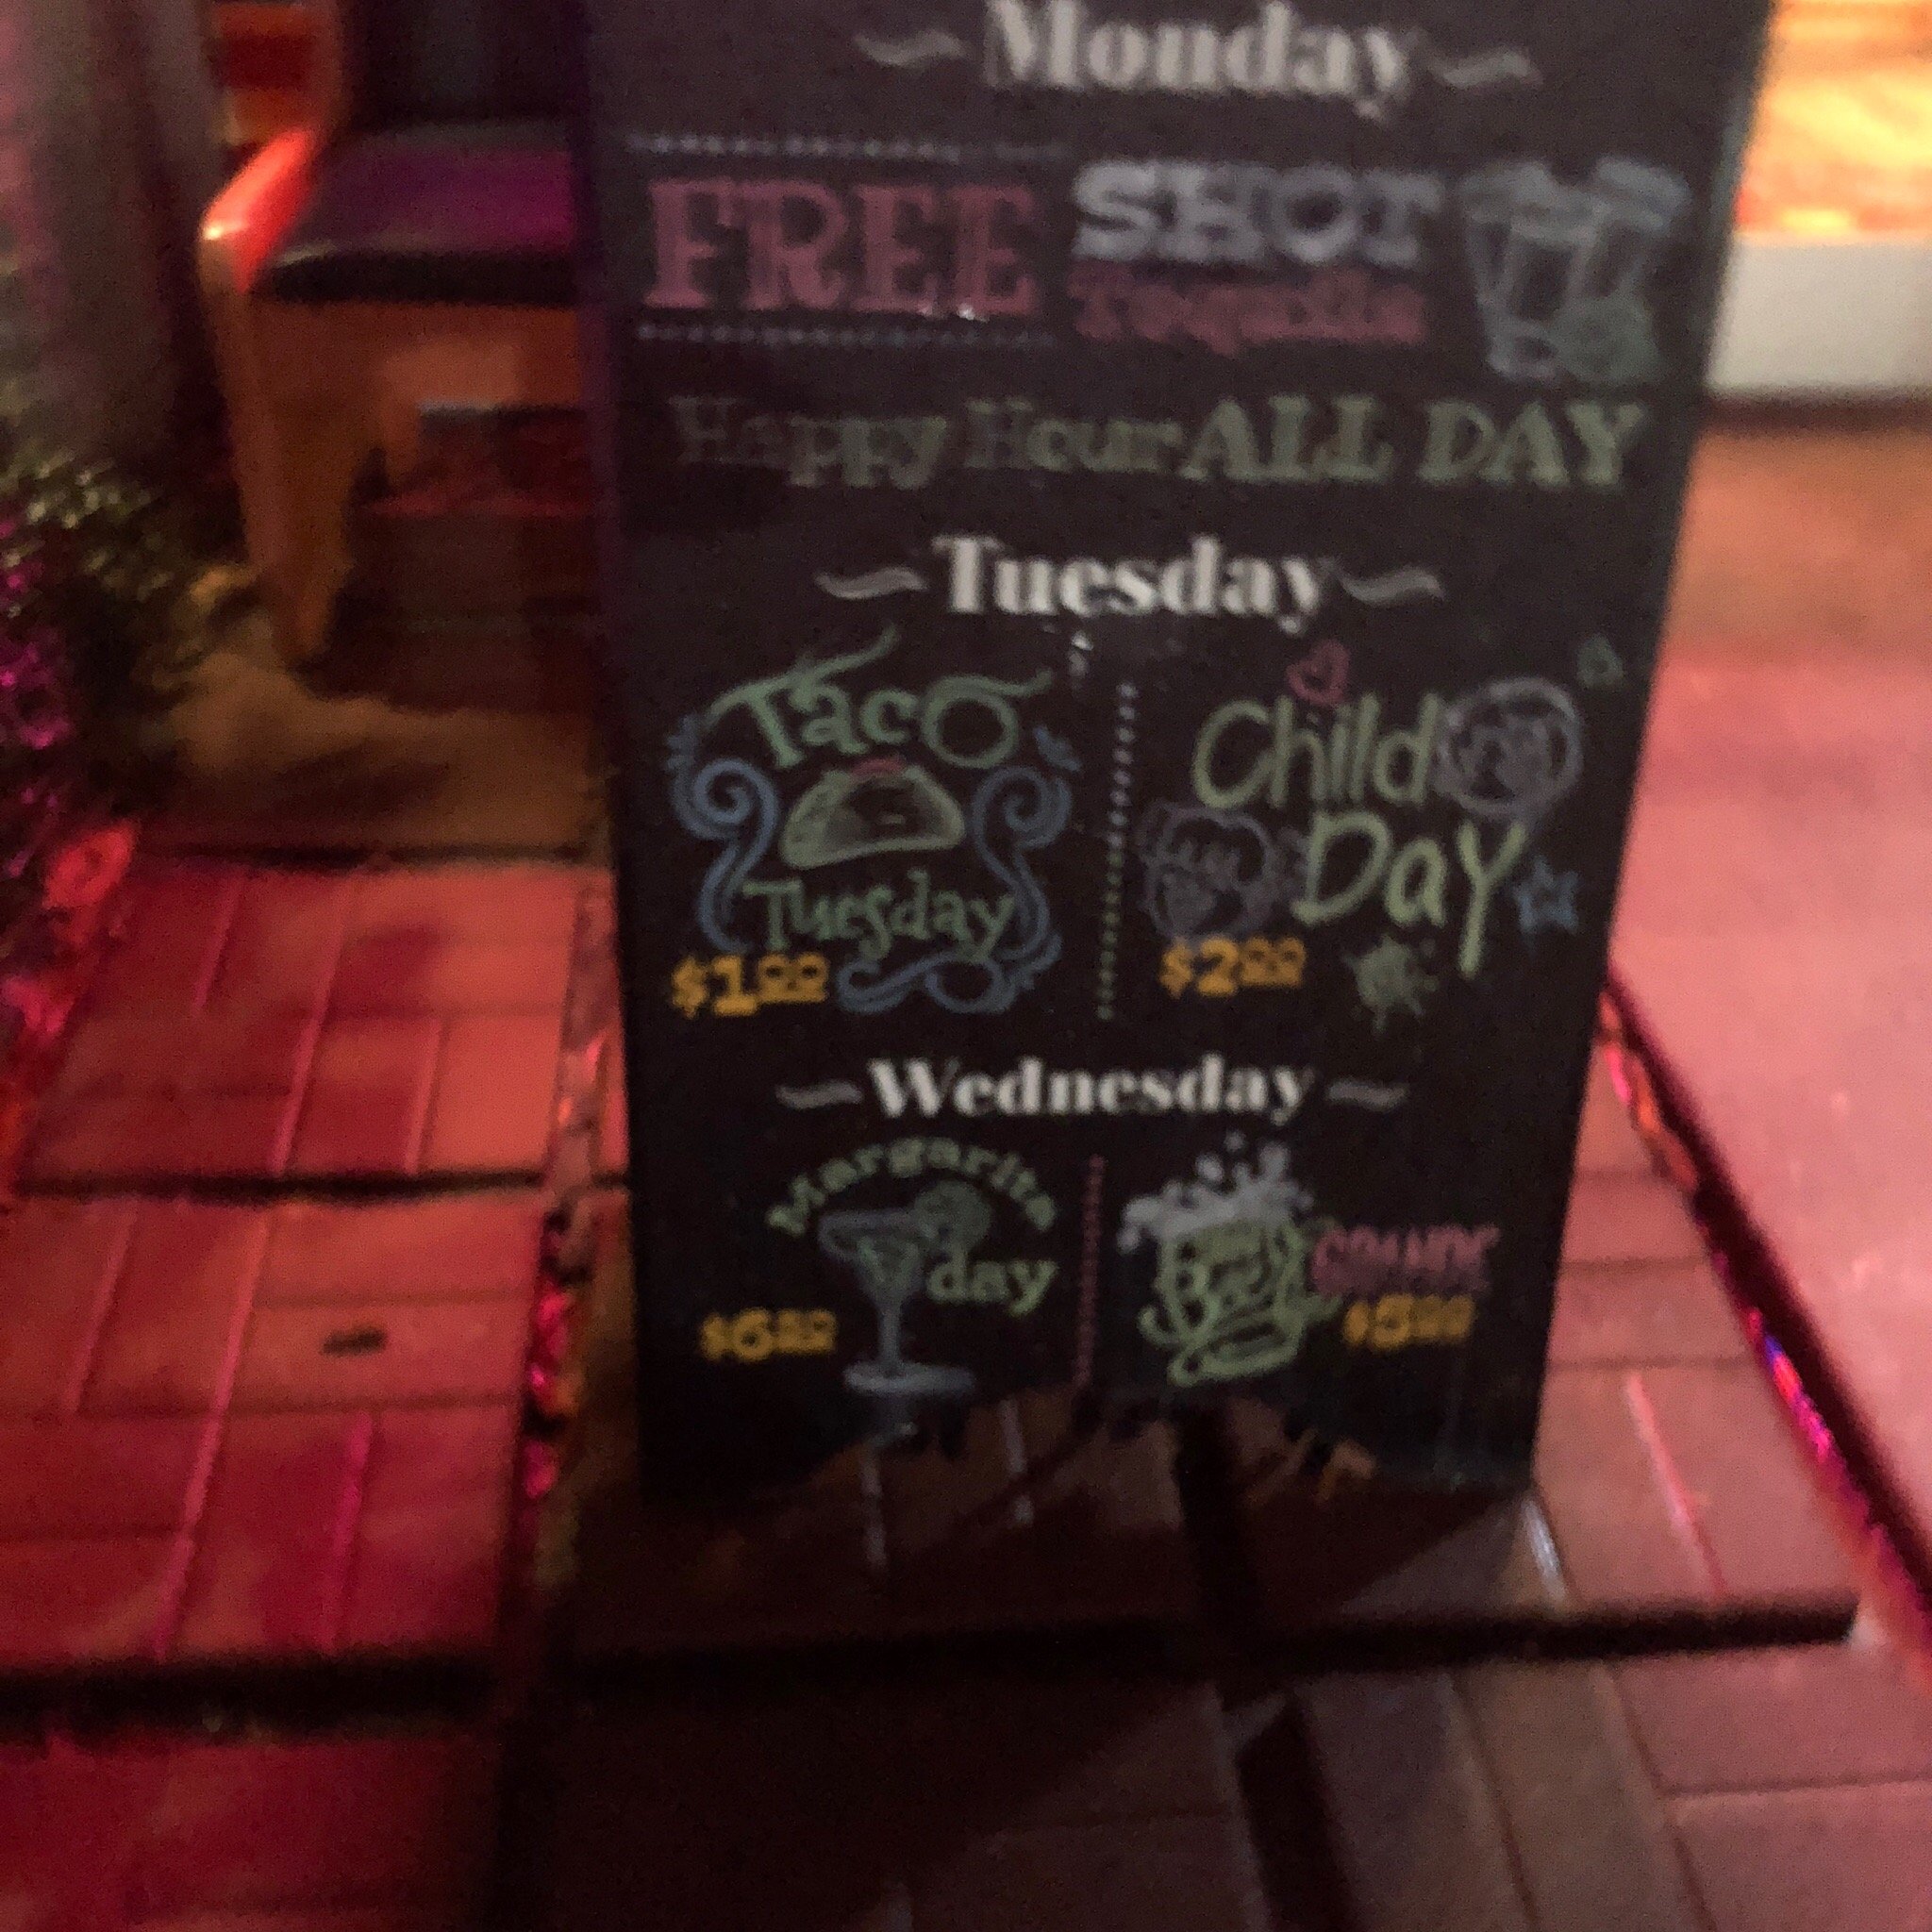 Monday
FREE SHOT
Tequila
Happy Hour ALL DAY
Tuesday
Taco
Tuesday
$1.00
Child
Day
$2.00
Wednesday
Margarita
day
Beer
GRANDE
$5.00